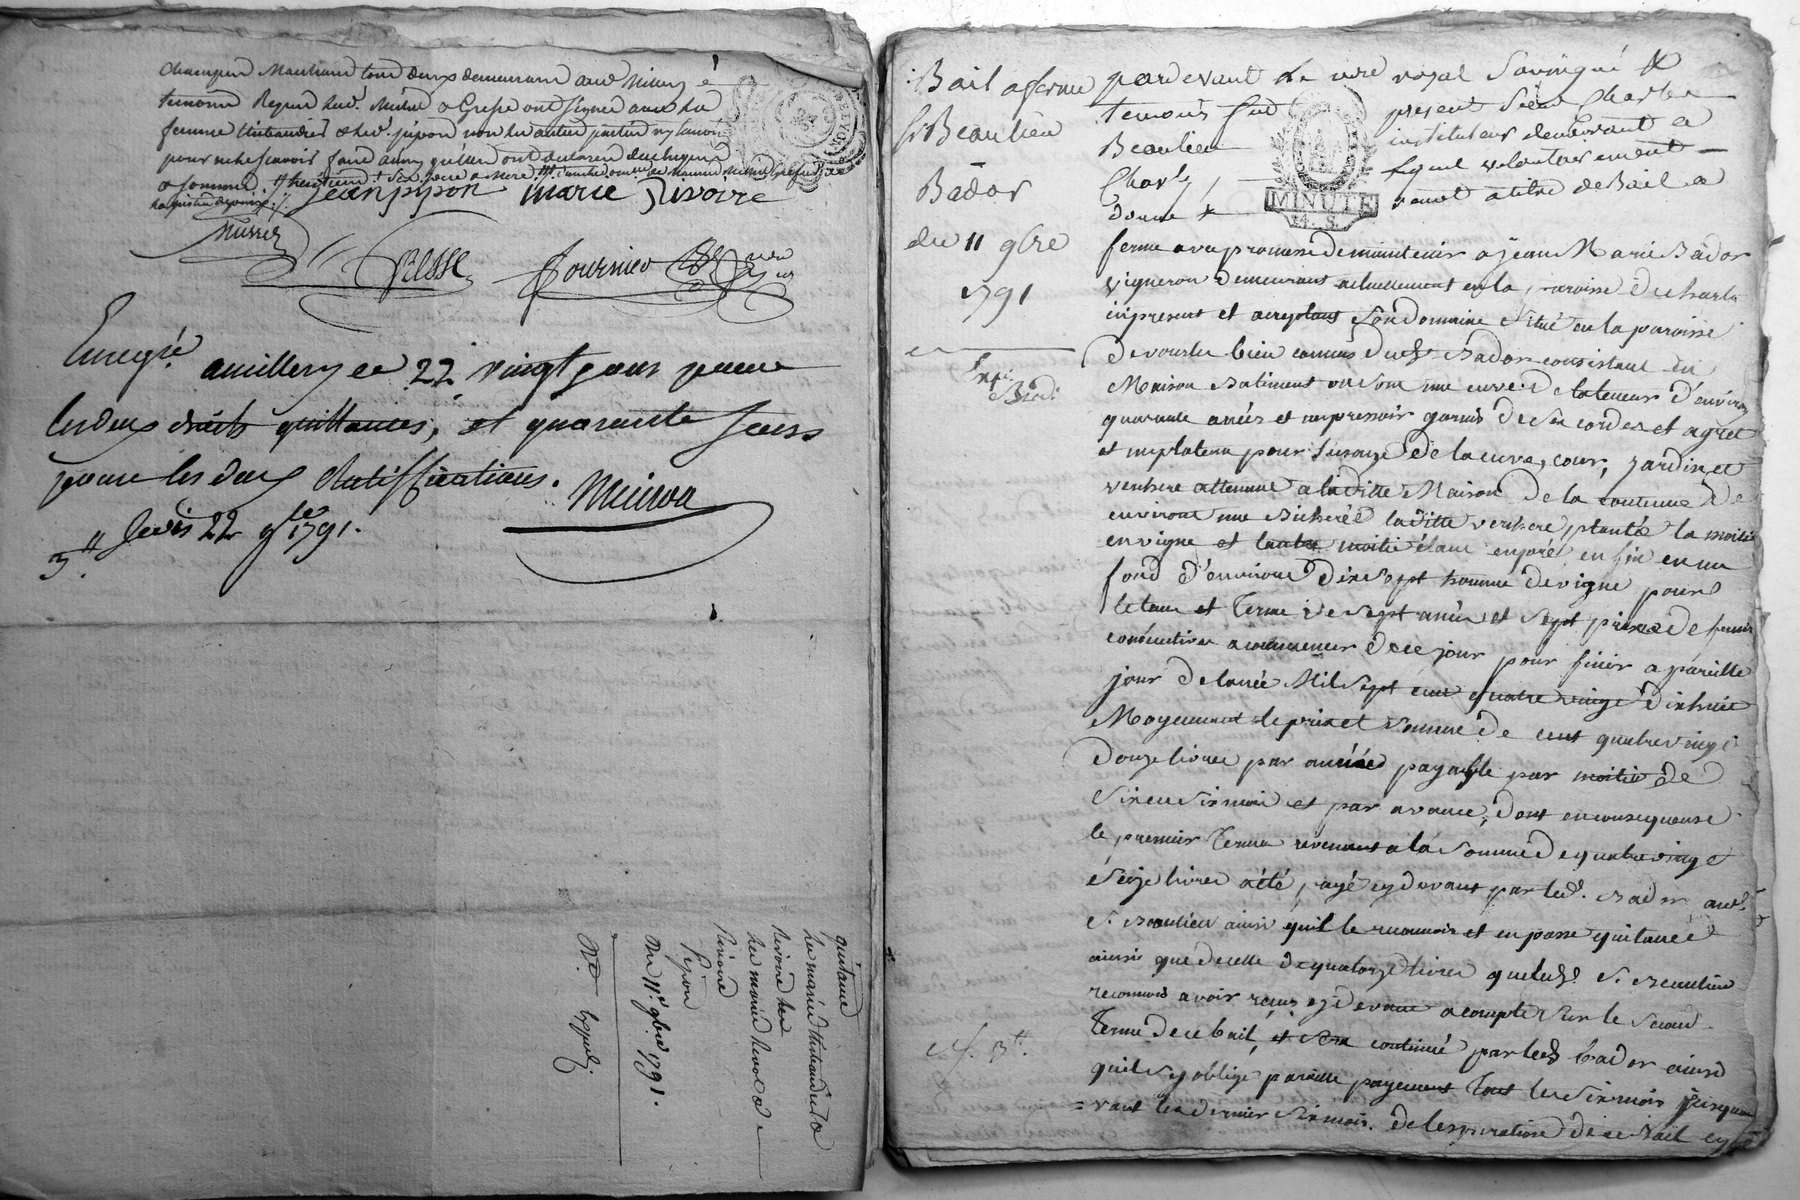 champin Marchand tous deux demeurant audit Millery
temoins Requis led. Métrat & Gresse ont signé avec la
femme Thibaudier & led. pipon non les autres parties ny temoin
pour ne le scavoir faire ainsy qu'elles ont declaré de ce enquis
& sommé
jean pipon marie Rivoire
Gresse Fournier
Enregré. a millery ce 22 vingt sous pour
les deux droits quittances, et quarante sous
pour les deux Ratiffications.
3tt Gedis 22 9bre 1791.
quitance
les mariés Thibaudier a
Rivoire
les mariés Rivoire &
Rivoire
Pipon
Du 11e. 9bre 1791.
Nre Expedi
Bail a ferme
Sr Beaulieu
Bador
du 11 9bre
1791
Exp.
pardevant Le nore royal soussigné &
temoins fut present Sieur Charles
Beaulieu instituteur demeurant a
Charly lequel volontairement
donne & remet a titre de Bail a
MINUTE
4. S.
ferme avec promesse de maintenir a jean Marie Bador
vigneron demeurant actuellement en la paroisse de charly
ici present et acceptant Son Domaine Situé en la paroisse
de vourles bien connus dud. Bador consistant en
Maison Batiment ou Sont une cuve de la teneur d'environ
quarante anées et un pressoir garnis de Ses cordes et agret
et un plateau pour l'usage de la cuve, cour, jardin et
verchere attenant a la ditte Maison de la contenue de
environt une Bicherée laditte verchere plantée la moitié
en vigne et lautre moitié étant en pré en fin en un
fond d'environt Dix Sept hommé de vigne pour
le tems et Terme de Sept anées et Sept prises de fruits
consecutives a commencer de ce jour pour finir a pareille
jour de lanée Mil Sept cent quatre vingt dix huit
Moyennant le prix et Somme de cent quatre vingt
douze livres par annéé payable par moitié de
Six en Six mois et par avance, dont en consequence
le premier Terme revenant a la Somme de quatre vingt
Seize livres a été payé cy devant par led. Bador aud.
S. Beaulieu ainsi quil le reconnois et en passe quitance
ainsi que de celle de quatorze livres que led. S. Beaulieu
reconnois avoir reçus cy devant a compte Sur le Second
Terme de ce bail, et Sera continué par led Bador ainsi
quil Sy oblige pareille payement Tous les Six mois jusques
avant les dernier Six mois de lexpiration de ce Bail cy